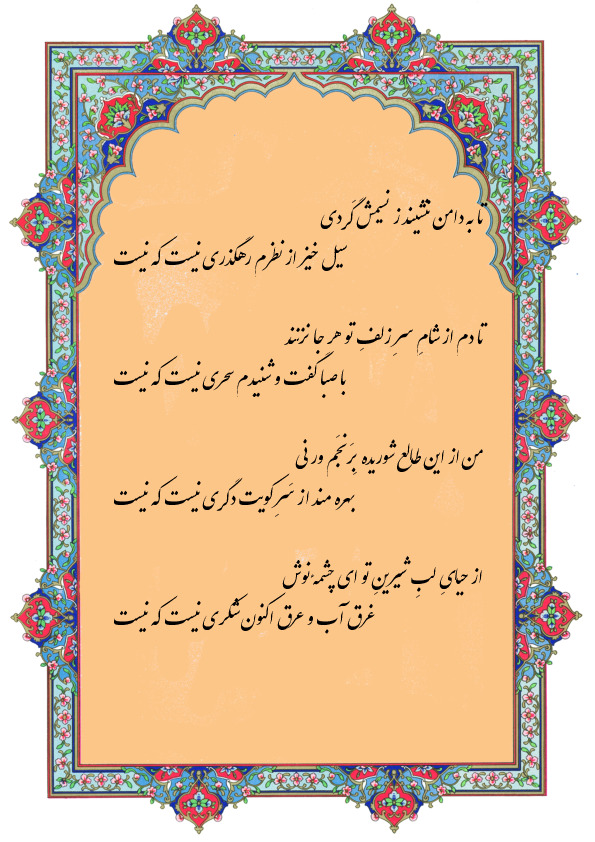 تا به دامن ننشیند ز نسیمش گَردی
سیل خیز از نظرم رهگذری نیست که نیست
تا دم از شامِ سرِ زلفِ تو هر جا نزنند
با صبا گفت و شنیدم سحری نیست که نیست
من از این طالع شوریده بِرَنجَم ور نی
بهره مند از سَرِ کویت دگری نیست که نیست
از حیایِ لبِ شیرینِ تو ای چشمهٔ نوش
غرق آب و عرق اکنون شکری نیست که نیست